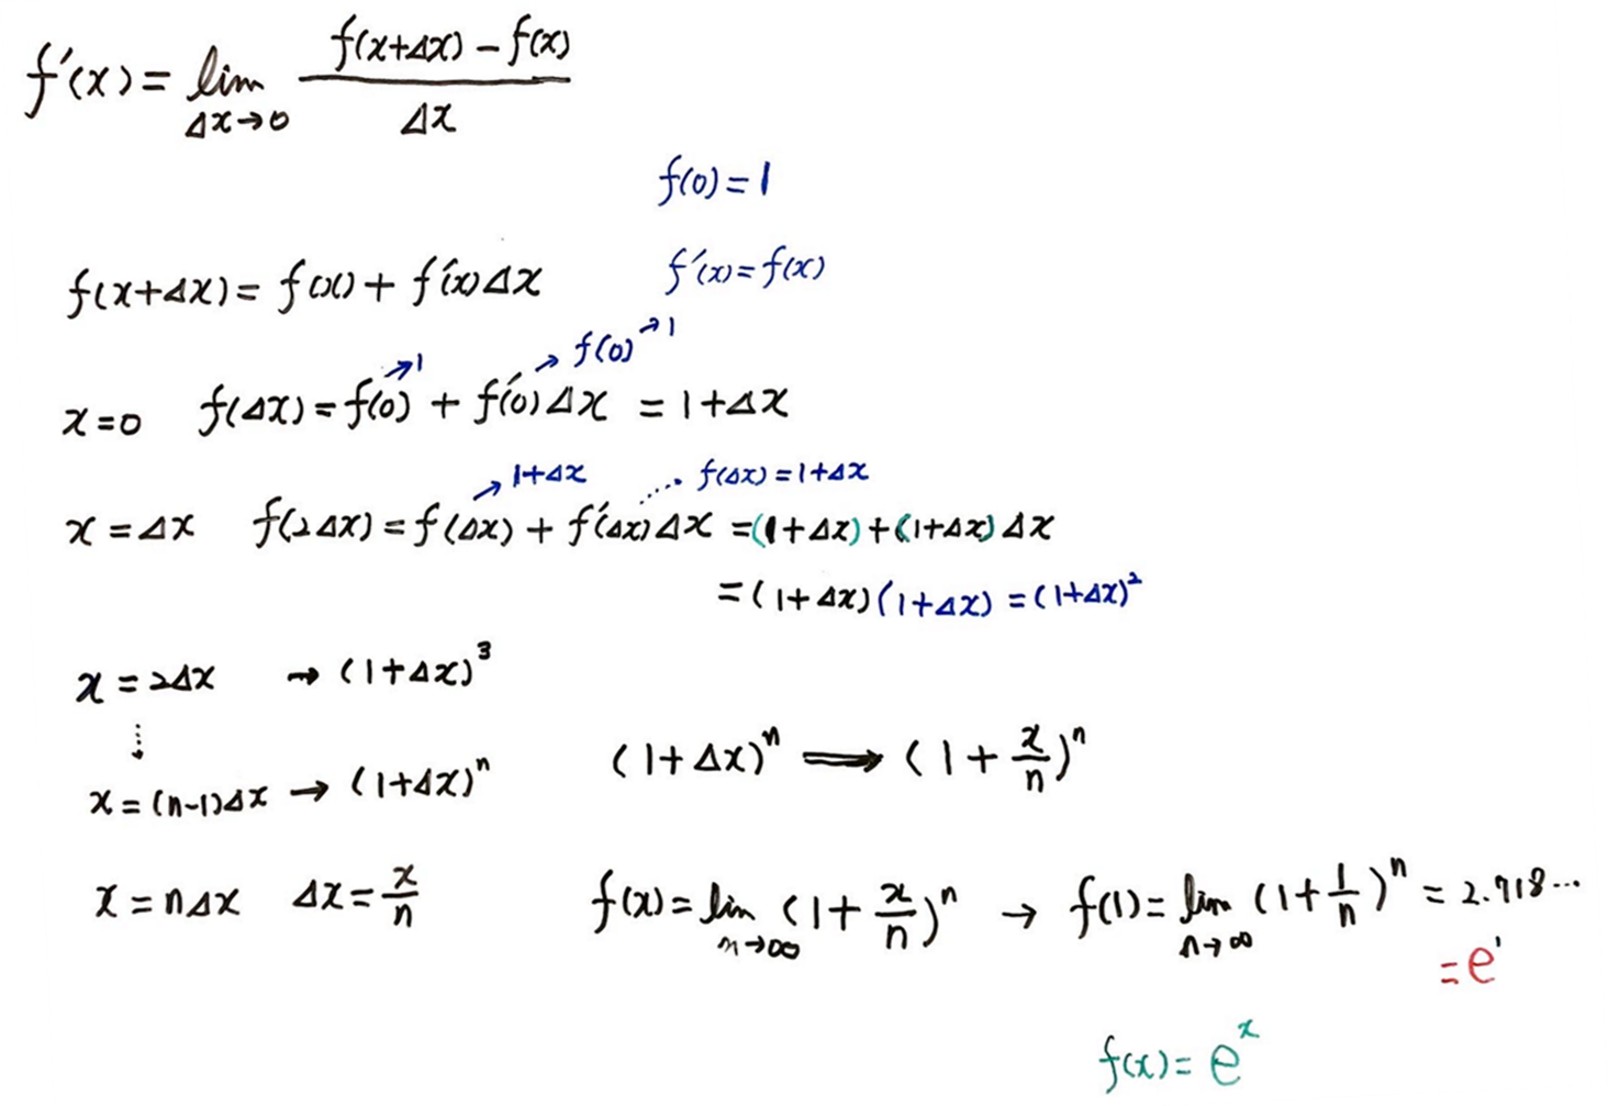 f′(x) = lim Δx→0 (f(x+Δx) − f(x)) / Δx
f(0) = 1
f(x+Δx) = f(x) + f′(x)Δx
f′(x) = f(x)
→1 → f(0) →1
x=0 f(Δx) = f(0) + f′(0)Δx = 1+Δx
→ 1+Δx ⋯ f(Δx) = 1+Δx
x = Δx f(2Δx) = f(Δx) + f′(Δx)Δx = (1+Δx) + (1+Δx)Δx
= (1+Δx)(1+Δx) = (1+Δx)²
x = 2Δx → (1+Δx)³
⋮
(1+Δx)ⁿ ⟹ (1 + x/n)ⁿ
x = (n−1)Δx → (1+Δx)ⁿ
x = nΔx Δx = x/n
f(x) = lim n→∞ (1 + x/n)ⁿ → f(1) = lim n→∞ (1 + 1/n)ⁿ = 2.718⋯
= e¹
f(x) = eˣ